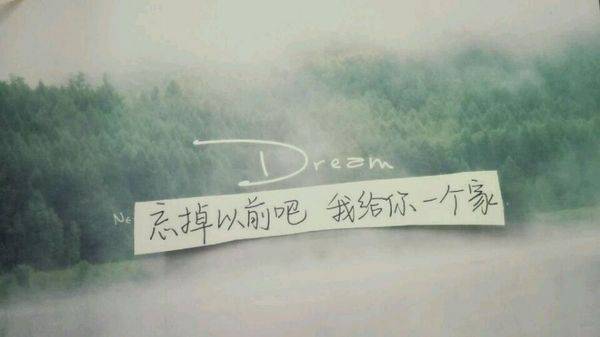 Dream
忘掉以前吧 我给你一个家